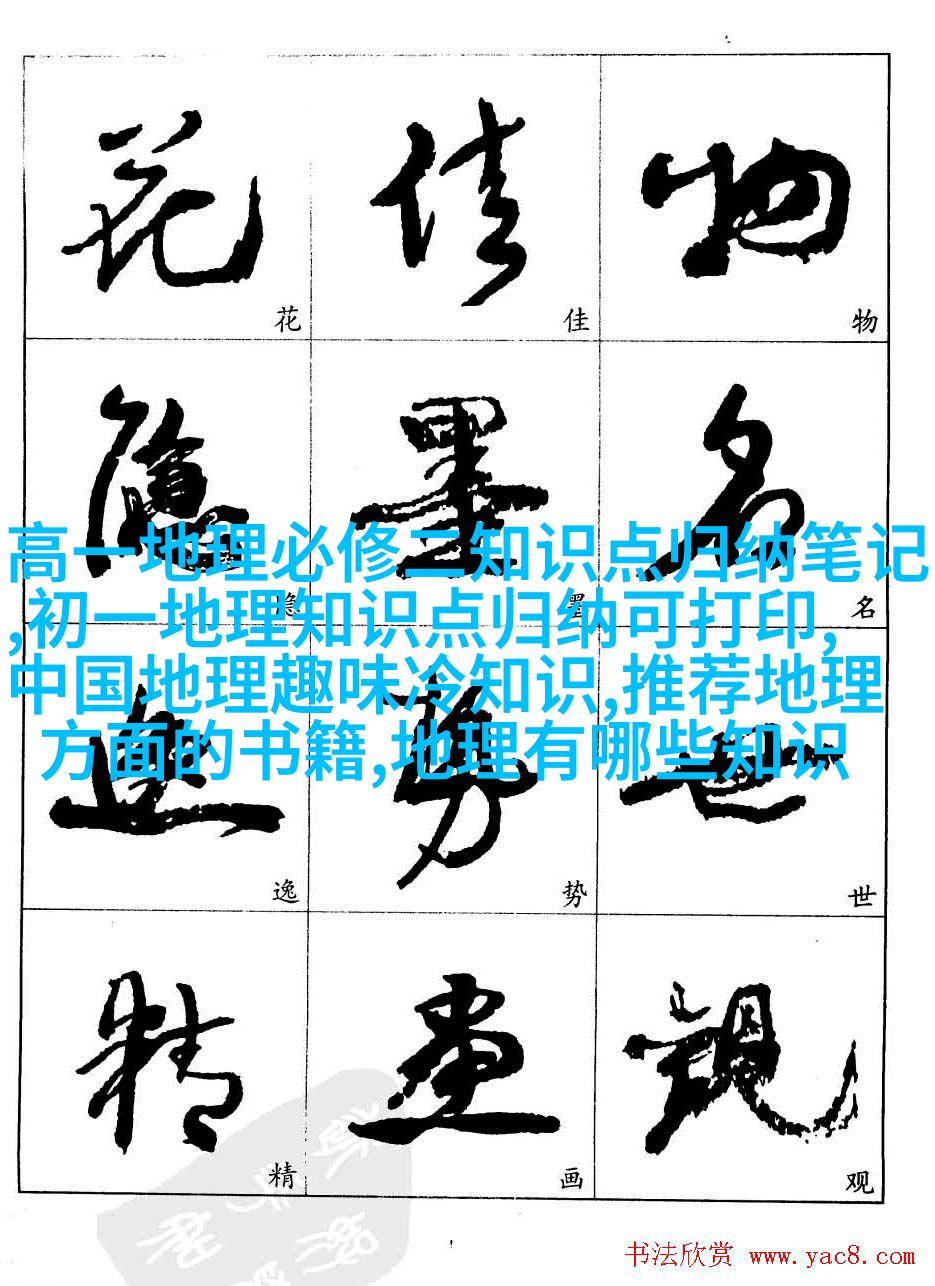 花 佳 物
花 佳 物
隐 墨 名
高一地理必修二知识点归纳笔记
隐 墨 名
,初一地理知识点归纳可打印,
中国地理趣味冷知识,推荐地理
方面的书籍,地理有哪些知识
逸 势 世
逸 势 世
精 画 观
精 画 观
书法欣赏 www.yac8.com